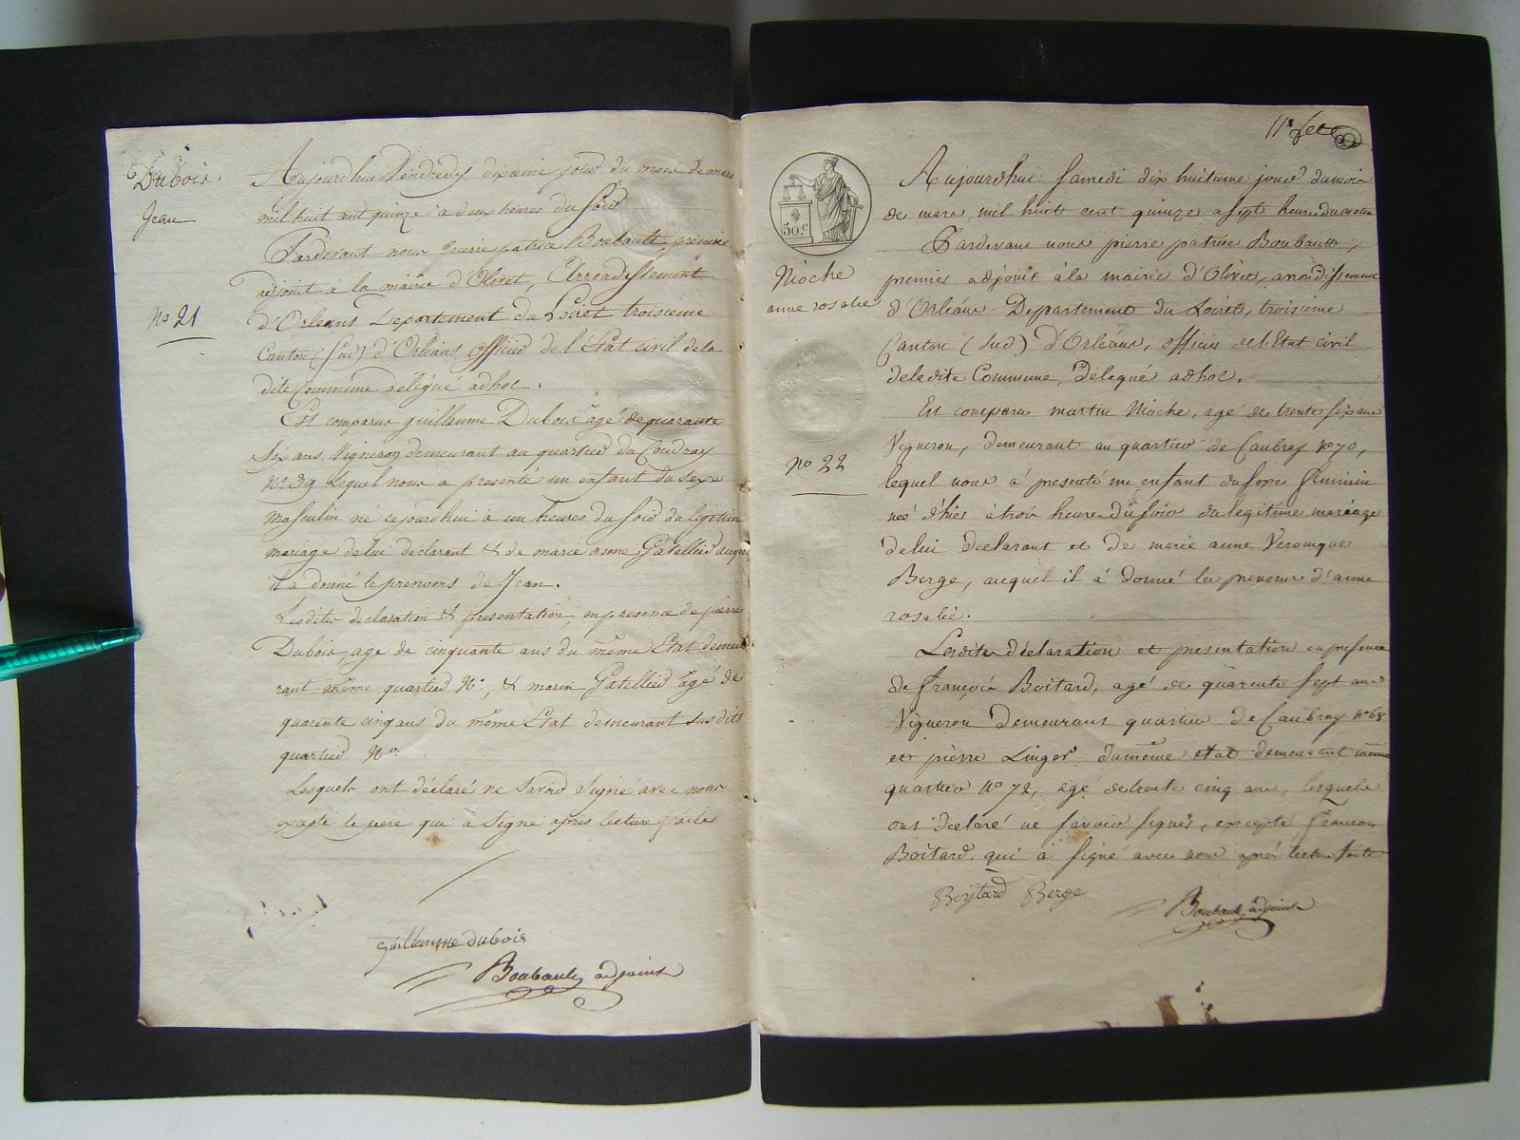 Dubois
Jean
No 21
Aujourdhui Vendredy dixieme jour du mois de mars
mil huit cent quinze a deux heures du soir
Pardevant nous pierre patrice Boubault, premier
adjoint à la mairie d'Olivet, Arrondissement
d'Orleans Departement du Loiret troisieme
Canton (sud) d'Orleans officier de l'Etat civil de la
dite Commune délégué adhoc.
Est comparu guillaume Dubois agé de quarante
six ans Vigneron demeurant au quartier du Coudray
No 39 lequel nous a presenté un enfant du sexe
masculin né cejourdhui à un heures du soir du légitime
mariage de lui declarant & de marie anne Gatellier auquel
il a donné le prenoms de Jean.
Lesdites declaration & presentation en presence de pierre
Dubois, age de cinquante ans du même Etat demeu
rant même quartier No , & marin Gatellier agé de
quarente cinq ans du même Etat demeurant susdit
quartier No
Lesquels ont déclaré ne Savoir Signé avec nous
excepte le pere qui à Signé après lecture faite
guillaume dubois
Boubault adjoint
11e
50 c
Nioche
anne rosalie
No 22
Aujourdhui Samedi dix huitieme jour du mois
de mars mil huit cent quinze a sept heure du matin
Pardevant nous pierre patrice Boubault,
premier adjoint à la mairie d'Olivet, arrondissement
d'Orléans Departement du Loiret, troisieme
Canton (sud) D'Orléans, officier de l'Etat civil
deladite Commune, Délegué adhoc.
Est comparu martin Nioche, agé de trente six ans
Vigneron, demeurant au quartier de Caubray No 70,
lequel nous à presenté un enfant du sexe feminin
neé d'hier à trois heure du soir du legitime mariage
delui declarant et de marie anne Veronique
Berge, auquel il à donné les prenoms d'anne
rosalie.
Lesdites déclaration et presentation en presence
de François Boitard, agé de quarente sept ans
Vigneron Demeurant quartier de Caubray No 68
et pierre Linger du même etat demeurant même
quartier No 72, agé de trente cinq ans, lesquels
ont declaré ne savoir signer, excepté francois
Boitard qui a signé avec nous après lecture faite
Boytard Berge
Boubault adjoint